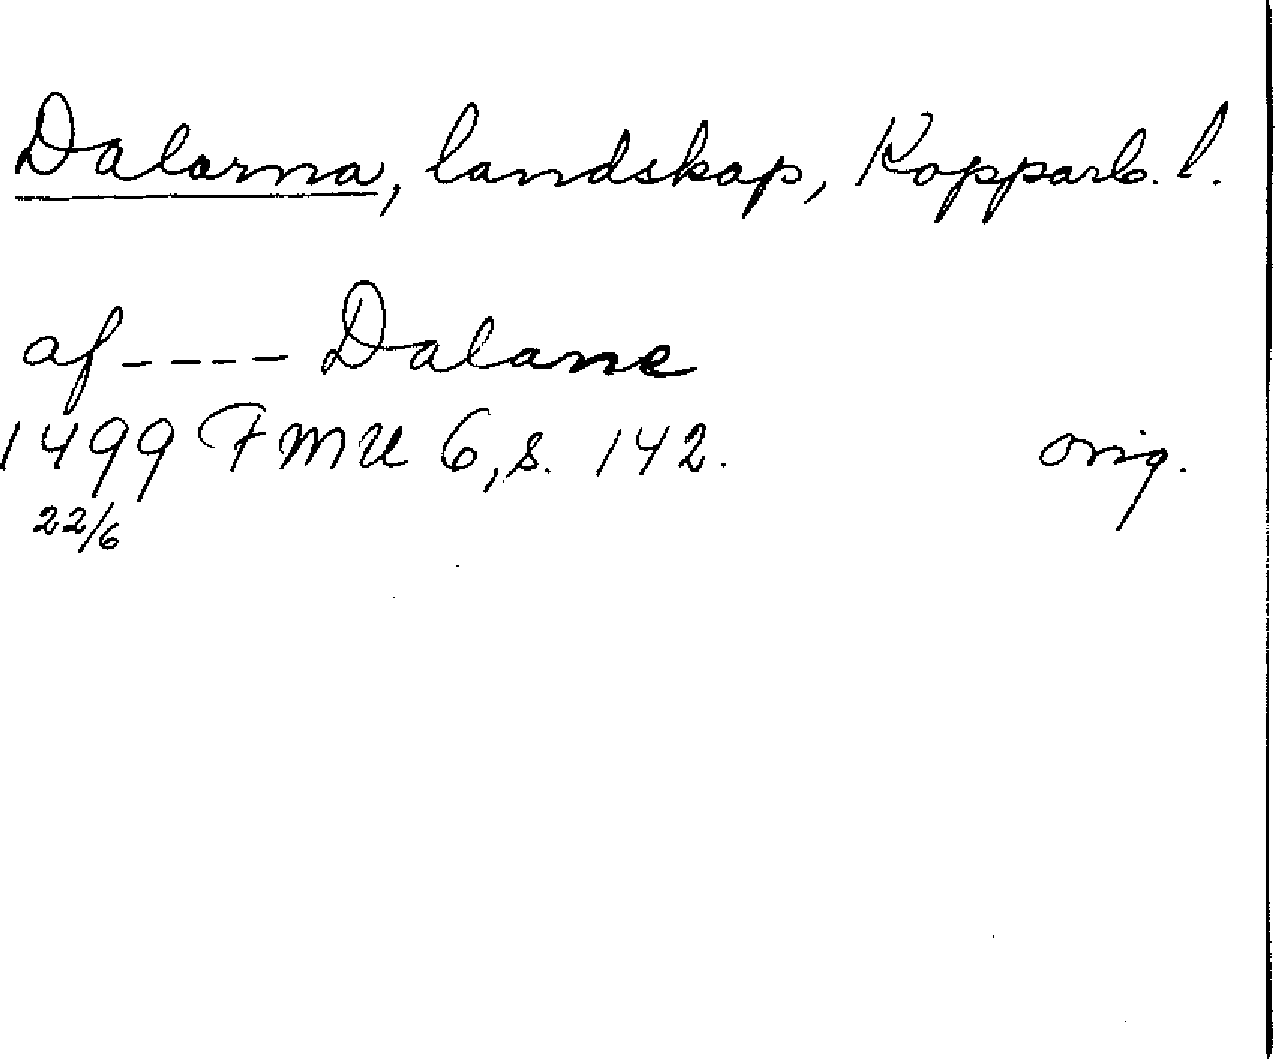 Dalarna, landskap, Kopparb. l.
af ---- Dalane
1499 FMU 6, s. 142. orig.
22/6